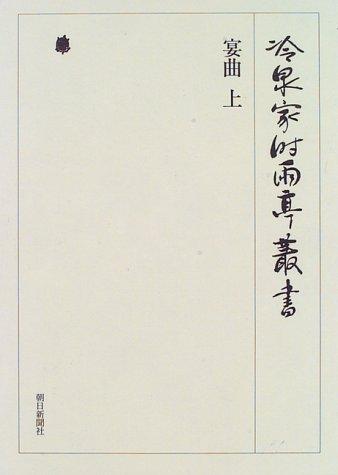 冷泉家時雨亭叢書
宴曲 上
朝日新聞社